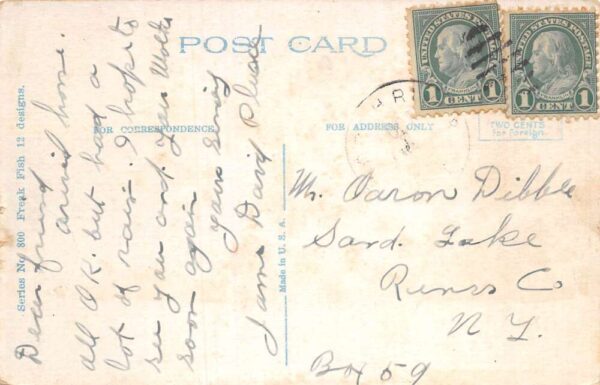 POST CARD
UNITED STATES POSTAGE
FRANKLIN
1 CENT 1
UNITED STATES POSTAGE
FRANKLIN
1 CENT 1
FOR CORRESPONDENCE
FOR ADDRESS ONLY
TWO CENTS
for foreign.
Series No. 800 Freak Fish 12 designs.
Made in U. S. A.
Dear friend
arrived home.
all O.K. but had a
lot of rain. I hope to
see you and your Mother
soon again
yours Sincy
James David
Mr. Aaron Dibble
Sand. Lake
Renss Co
N Y.
Box 59